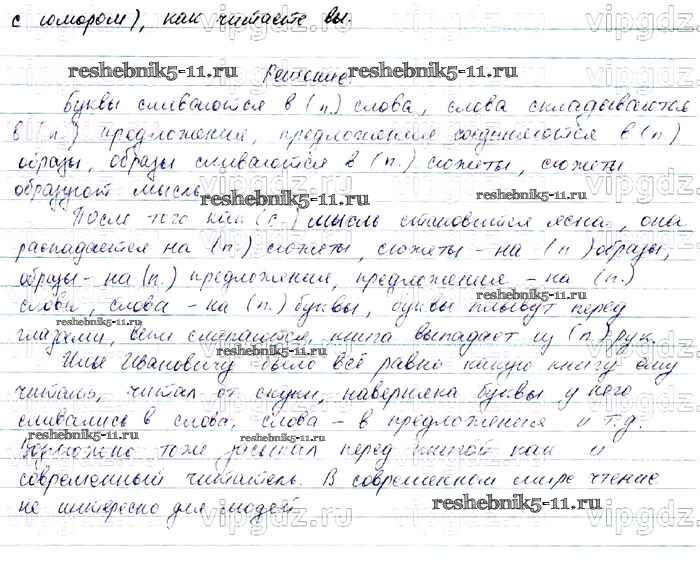 с юмором), как читаете вы.
reshebnik5-11.ru
Решение.
Буквы сливаются в (п.) слова, слова складываются
в (п.) предложения, предложения соединяются в (п)
образы, образы сливаются в (п.) сюжеты, сюжеты
образуют мысль
reshebnik5-11.ru
reshebnik5-11.ru
После того как (с.) мысль становится ясна, она
распадается на (п.) сюжеты, сюжеты - на (п) образы,
образы - на (п.) предложения, предложение - на (п.)
слова, слова - на (п.) буквы, буквы плывут перед
reshebnik5-11.ru
глазами, веки слипаются, книга выпадает из (п.) рук.
reshebnik5-11.ru
Илье Ивановичу было всё равно какую книгу ему
читать, читал от скуки, наверняка буквы у него
reshebnik5-11.ru
сливались в слова, слова - в предложения и т.д.
reshebnik5-11.ru
reshebnik5-11.ru
Возможно тоже засыпал перед книгой как и
современный читатель. В современном мире чтение
не интересно для людей
reshebnik5-11.ru
vipgdz.ru